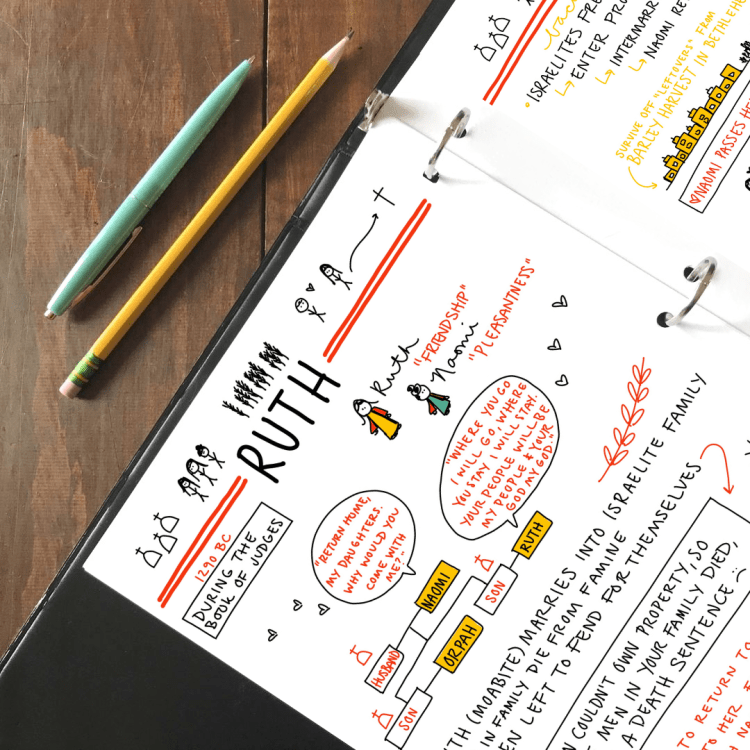 ISRAELITES
ENTER
INTERMARR
NAOMI
SURVIVE OFF "LEFTOVERS" FROM
BARLEY HARVEST IN BETHLEHE
NAOMI PASSES
RUTH
Ruth
"FRIENDSHIP"
Naomi
"PLEASANTNESS"
1290 BC
DURING THE
BOOK OF JUDGES
"RETURN HOME,
MY DAUGHTERS.
WHY WOULD YOU
COME WITH
ME?"
"WHERE YOU GO
I WILL GO, WHERE
YOU STAY I WILL STAY.
YOUR PEOPLE WILL BE
MY PEOPLE & YOUR
GOD MY GOD."
HUSBAND
NAOMI
SON
ORPAH
SON
RUTH
(MOABITE) MARRIES INTO ISRAELITE FAMILY
IN FAMILY DIE FROM FAMINE
LEFT TO FEND FOR THEMSELVES
COULDN'T OWN PROPERTY, SO
MEN IN YOUR FAMILY DIED,
A DEATH SENTENCE :(
TO RETURN TO
TO HER